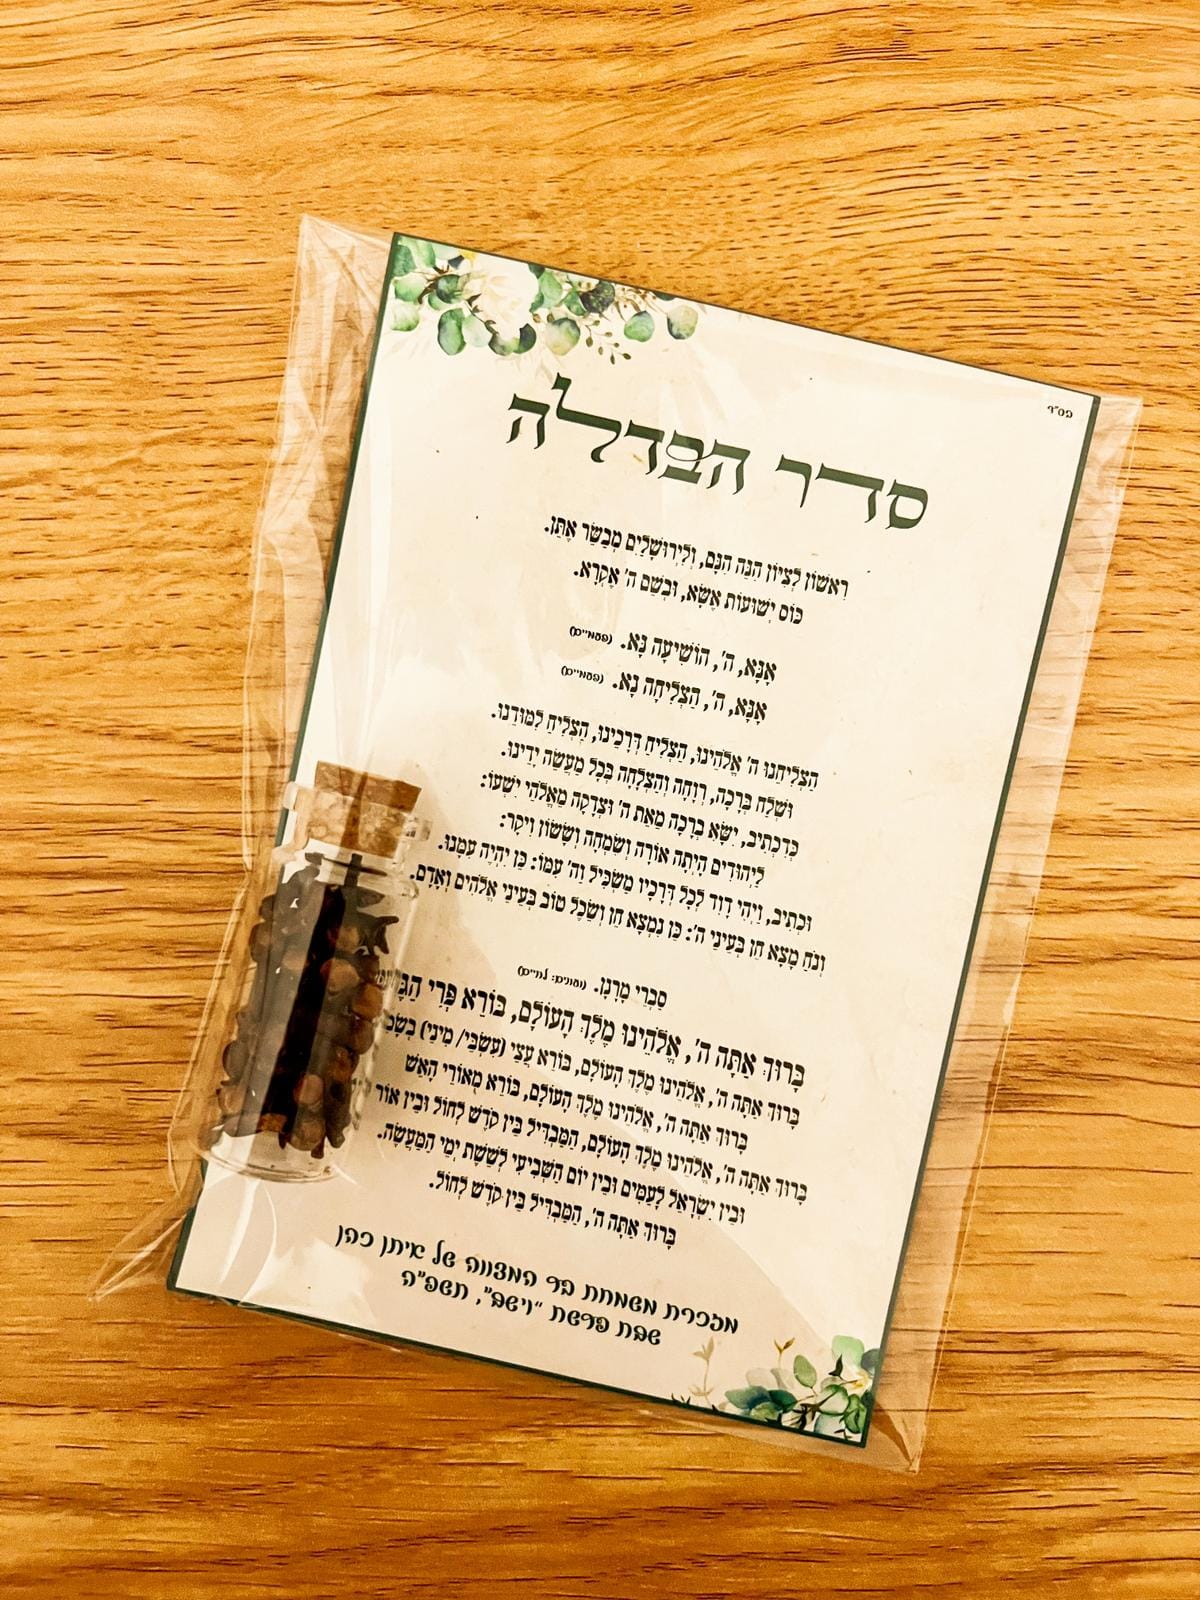 בס"ד
סדר הבדלה
רִאשׁוֹן לְצִיּוֹן הִנֵּה הִנָּם, וְלִירוּשָׁלַיִם מְבַשֵּׂר אֶתֵּן.
כּוֹס יְשׁוּעוֹת אֶשָּׂא, וּבְשֵׁם ה' אֶקְרָא.
אָנָּא, ה', הוֹשִׁיעָה נָּא. (פעמיים)
אָנָּא, ה', הַצְלִיחָה נָא. (פעמיים)
הַצְלִיחֵנוּ ה' אֱלֹהֵינוּ, הַצְלִיחַ דְּרָכֵינוּ, הַצְלִיחַ לִמּוּדֵנוּ.
וּשְׁלַח בְּרָכָה, רְוָחָה וְהַצְלָחָה בְּכָל מַעֲשֵׂה יָדֵינוּ.
כְּדִכְתִיב, יִשָּׂא בְרָכָה מֵאֵת ה' וּצְדָקָה מֵאֱלֹהֵי יִשְׁעוֹ:
לַיְּהוּדִים הָיְתָה אוֹרָה וְשִׂמְחָה וְשָׂשׂוֹן וִיקָר:
וּכְתִיב, וַיְהִי דָוִד לְכָל דְּרָכָיו מַשְׂכִּיל וַה' עִמּוֹ: כֵּן יִהְיֶה עִמָּנוּ.
וְנֹחַ מָצָא חֵן בְּעֵינֵי ה': כֵּן נִמְצָא חֵן וְשֵׂכֶל טוֹב בְּעֵינֵי אֱלֹהִים וְאָדָם.
סַבְרִי מָרָנָן. (ועונים: לחיים)
בָּרוּךְ אַתָּה ה', אֱלֹהֵינוּ מֶלֶךְ הָעוֹלָם, בּוֹרֵא פְּרִי
בָּרוּךְ אַתָּה ה', אֱלֹהֵינוּ מֶלֶךְ הָעוֹלָם, בּוֹרֵא עֲצֵי (עִשְׂבֵּי/ מִינֵי)
בָּרוּךְ אַתָּה ה', אֱלֹהֵינוּ מֶלֶךְ הָעוֹלָם, בּוֹרֵא מְאוֹרֵי הָאֵשׁ
בָּרוּךְ אַתָּה ה', אֱלֹהֵינוּ מֶלֶךְ הָעוֹלָם, הַמַּבְדִּיל בֵּין קֹדֶשׁ לְחוֹל וּבֵין אוֹר
וּבֵין יִשְׂרָאֵל לָעַמִּים וּבֵין יוֹם הַשְּׁבִיעִי לְשֵׁשֶׁת יְמֵי הַמַּעֲשֶׂה.
בָּרוּךְ אַתָּה ה', הַמַּבְדִּיל בֵּין קֹדֶשׁ לְחוֹל.
מזכרת משמחת בר המצווה של איתן כהן
שבת פרשת "וישב", תשפ"ה